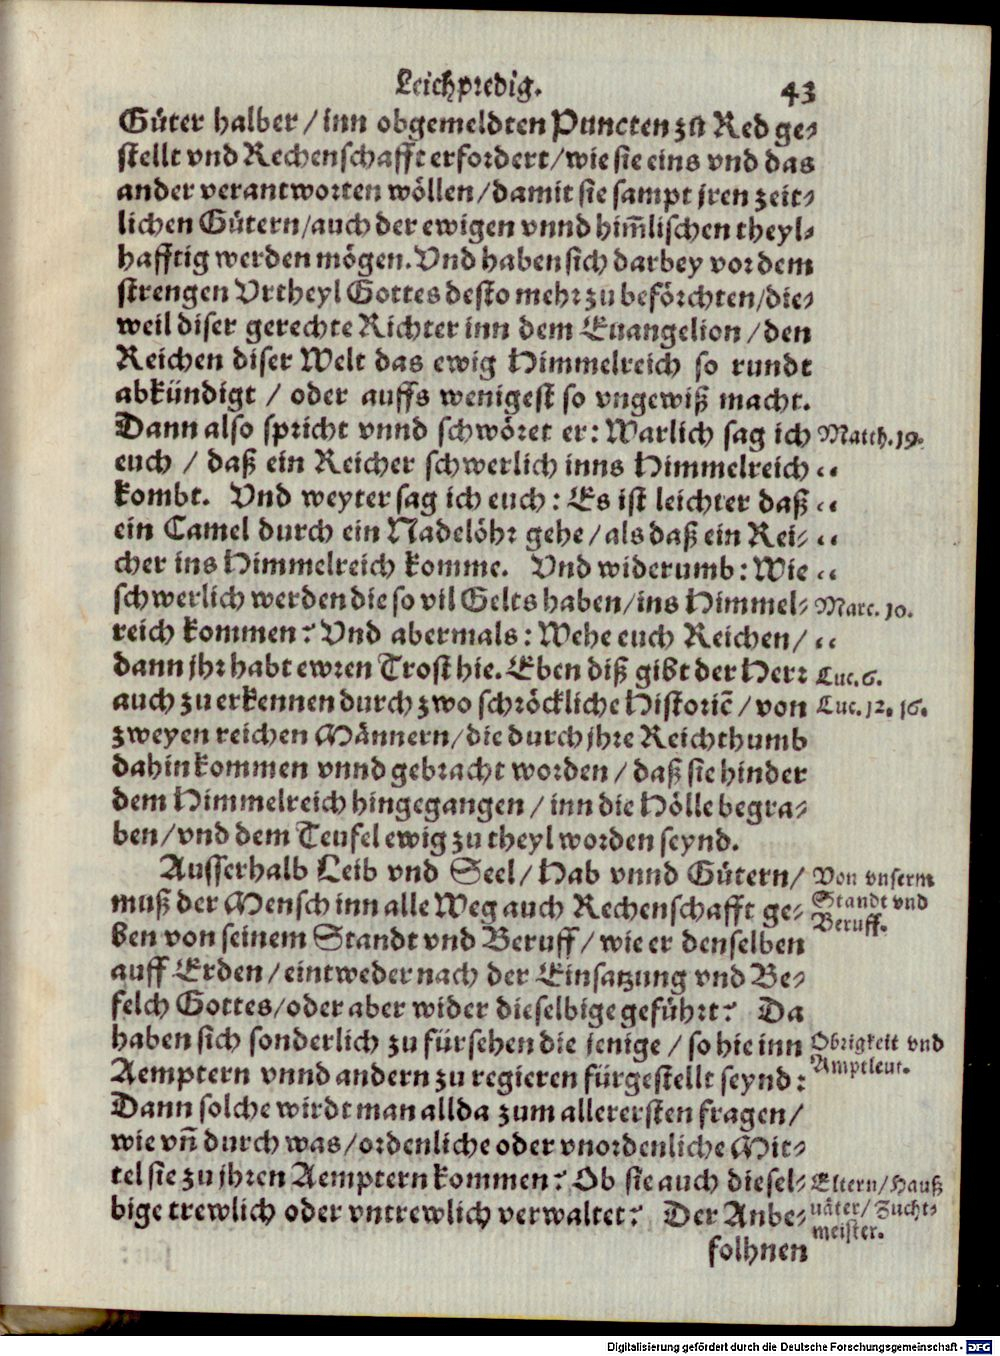 Leichpredig. 43
Güter halber / inn obgemeldten Puncten zů Red ge⸗
stellt vnd Rechenschafft erfordert / wie sie eins vnd das
ander verantworten wöllen / damit sie sampt jren zeit⸗
lichen Gütern / auch der ewigen vnnd him̃lischen theyl⸗
hafftig werden mögen. Vnd haben sich darbey vor dem
strengen Vrtheyl Gottes desto mehr zu beförchten / die⸗
weil diser gerechte Richter inn dem Euangelion / den
Reichen diser Welt das ewig Himmelreich so rundt
abkündigt / oder auffs wenigest so vngewiß macht.
Dann also spricht vnnd schwöret er: Warlich sag ich Matth. 19.
euch / daß ein Reicher schwerlich inns Himmelreich “
kombt. Vnd weyter sag ich euch: Es ist leichter daß “
ein Camel durch ein Nadelöhr gehe / als daß ein Rei⸗ “
cher ins Himmelreich komme. Vnd widerumb: Wie “
schwerlich werden die so vil Gelts haben / ins Himmel⸗ Marc. 10.
reich kommen? Vnd abermals: Wehe euch Reichen / “
dann jhr habt ewren Trost hie. Eben diß gibt der Herr Luc. 6.
auch zu erkennen durch zwo schröckliche Historiẽ / von Luc. 12. 16.
zweyen reichen Männern / die durch jhre Reichthumb
dahin kommen vnnd gebracht worden / daß sie hinder
dem Himmelreich hingegangen / inn die Hölle begra⸗
ben / vnd dem Teufel ewig zu theyl worden seynd.
Ausserhalb Leib vnd Seel / Hab vnnd Gütern / Von vnserm
muß der Mensch inn alle Weg auch Rechenschafft ge⸗ Standt vnd
ben von seinem Standt vnd Beruff / wie er denselben Beruff.
auff Erden / eintweder nach der Einsatzung vnd Be⸗
felch Gottes / oder aber wider dieselbige geführt? Da
haben sich sonderlich zu fürsehen die jenige / so hie inn Obrigkeit vnd
Aemptern vnnd andern zu regieren fürgestellt seynd: Amptleut.
Dann solche wirdt man allda zum allerersten fragen /
wie vñ durch was / ordenliche oder vnordenliche Mit⸗
tel sie zu jhren Aemptern kommen? Ob sie auch diesel⸗ Eltern / Hauß
bige trewlich oder vntrewlich verwaltet? Der Anbe⸗ väter / Zucht⸗
meister.
folhnen
Digitalisierung gefördert durch die Deutsche Forschungsgemeinschaft - DFG